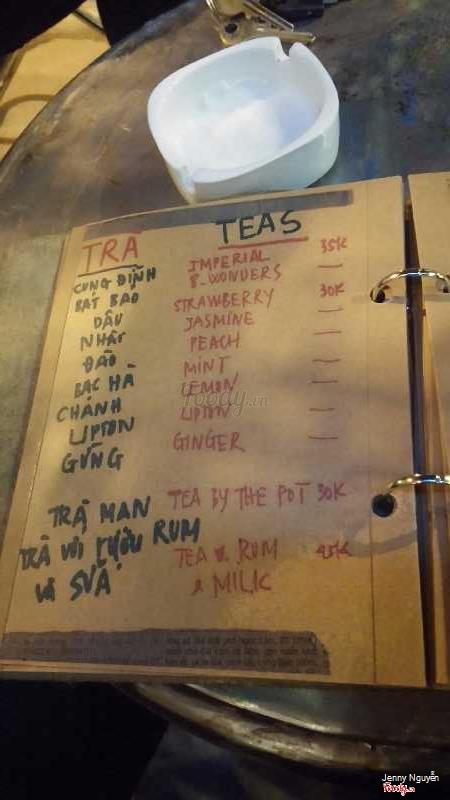 TRÀ TEAS
CUNG ĐÌNH IMPERIAL 35K
BÁT BẢO 8-WONDERS —
DÂU STRAWBERRY 30K
NHÀI JASMINE —
ĐÀO PEACH —
BẠC HÀ MINT —
CHANH LEMON —
LIPTON LIPTON —
GỪNG GINGER —
TRÀ MAN TEA BY THE POT 30K
TRÀ VỚI RƯỢU RUM TEA W. RUM 45K
VÀ SỮA & MILK
foody.vn
Jenny Nguyễn
foody.vn